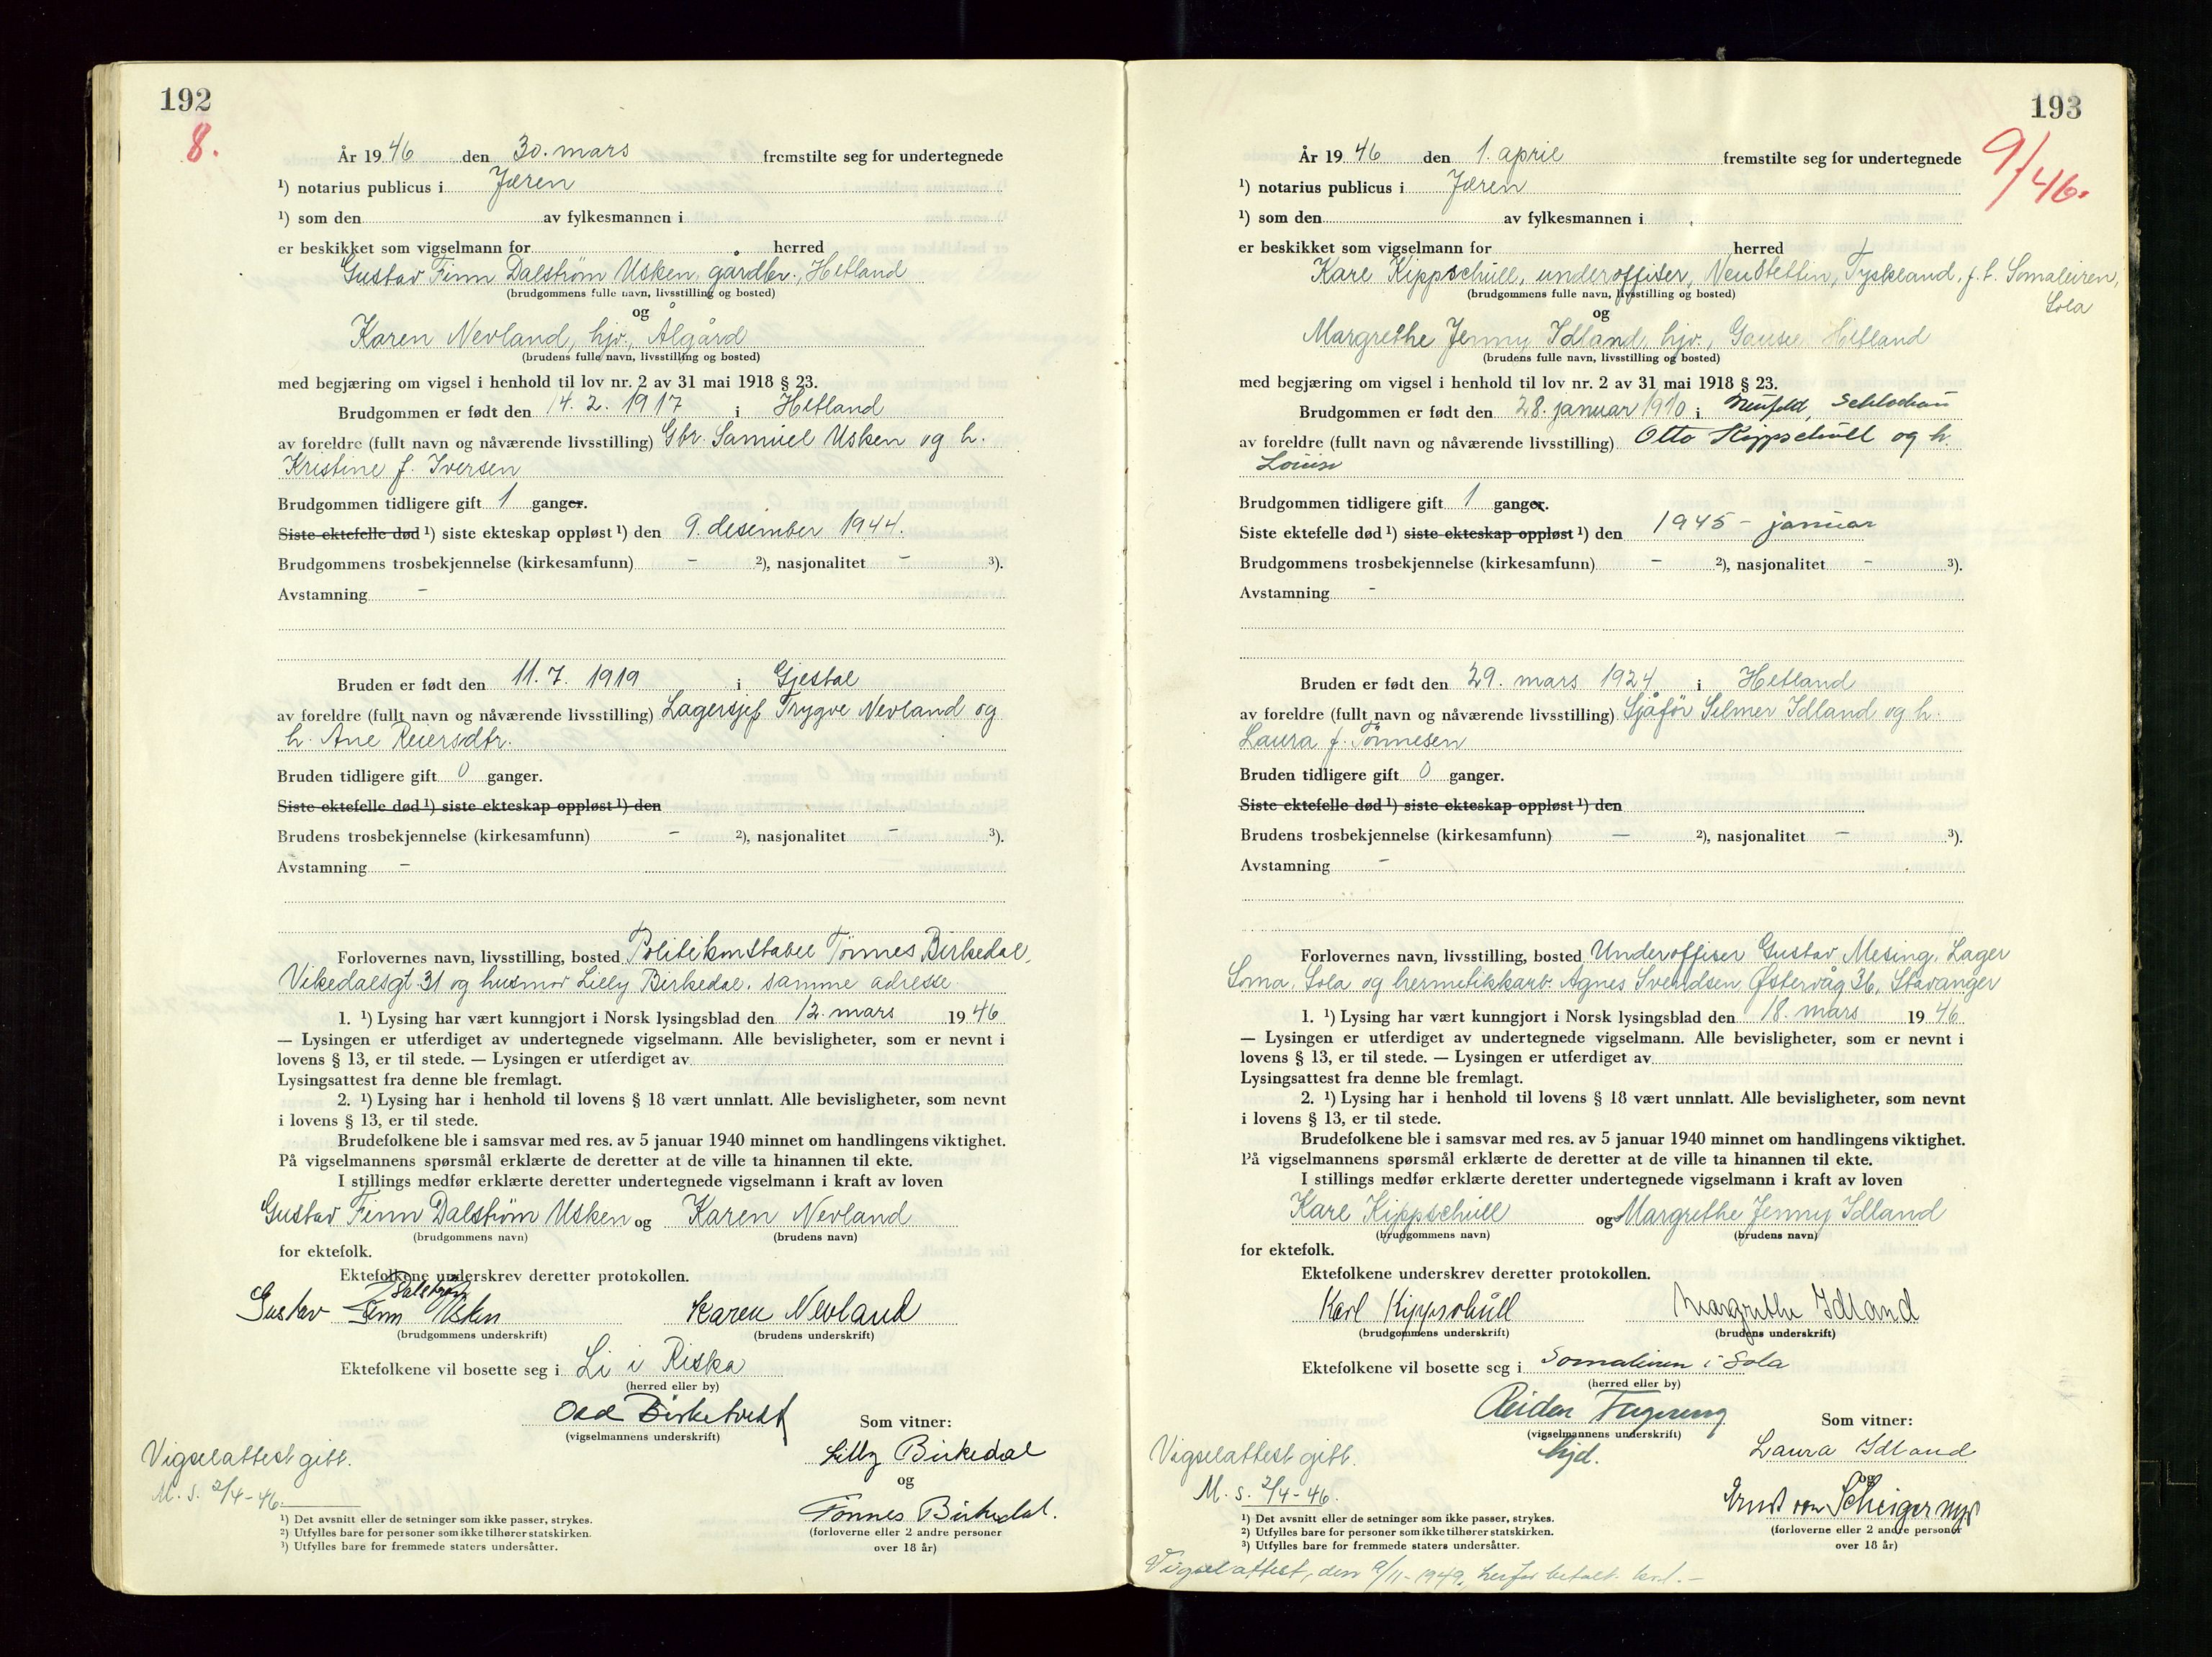 192
8.
År 19 46 den 30. mars fremstilte seg for undertegnede
¹) notarius publicus i Jæren
¹) som den av fylkesmannen i
er beskikket som vigselmann for herred
Gustav Finn Dalstrøm Usken, gårdbr., Hetland
(brudgommens fulle navn, livsstilling og bosted)
og
Karen Nevland, hjv., Ålgård
(brudens fulle navn, livsstilling og bosted)
med begjæring om vigsel i henhold til lov nr. 2 av 31 mai 1918 § 23.
Brudgommen er født den 14. 2. 1917 i Hetland
av foreldre (fullt navn og nåværende livsstilling) Gbr. Samuel Usken og h.
Kristine f. Iversen
Brudgommen tidligere gift 1 ganger.
Siste ektefelle død ¹) siste ekteskap oppløst ¹) den 9. desember 1944.
Brudgommens trosbekjennelse (kirkesamfunn) - ²), nasjonalitet - ³).
Avstamning -
Bruden er født den 11. 7. 1919 i Gjestal
av foreldre (fullt navn og nåværende livsstilling) Lagersjef Trygve Nevland og
h. Ane Reiersdtr.
Bruden tidligere gift 0 ganger.
Siste ektefelle død ¹) siste ekteskap oppløst ¹) den
Brudens trosbekjennelse (kirkesamfunn) - ²), nasjonalitet - ³).
Avstamning -
Forlovernes navn, livsstilling, bosted Politikonstabel Tønnes Birkedal,
Vikedalsgt. 31 og husmor Lilly Birkedal, samme adresse.
1. ¹) Lysing har vært kunngjort i Norsk lysingsblad den 12. mars 19 46
— Lysingen er utferdiget av undertegnede vigselmann. Alle bevisligheter, som er nevnt i
lovens § 13, er til stede. — Lysingen er utferdiget av
Lysingsattest fra denne ble fremlagt.
2. ¹) Lysing har i henhold til lovens § 18 vært unnlatt. Alle bevisligheter, som nevnt
i lovens § 13, er til stede.
Brudefolkene ble i samsvar med res. av 5 januar 1940 minnet om handlingens viktighet.
På vigselmannens spørsmål erklærte de deretter at de ville ta hinannen til ekte.
I stillings medfør erklærte deretter undertegnede vigselmann i kraft av loven
Gustav Finn Dalstrøm Usken og Karen Nevland
(brudgommens navn) (brudens navn)
for ektefolk.
Ektefolkene underskrev deretter protokollen.
Dalstrøm
Gustav Finn Usken Karen Nevland
(brudgommens underskrift) (brudens underskrift)
Ektefolkene vil bosette seg i Li i Riska
(herred eller by)
Odd Birketvedt
(vigselmannens underskrift)
Som vitner:
Lilly Birkedal
og
Tönnes Birkedal.
(forloverne eller 2 andre personer
over 18 år)
Vigselattest gitt.
M. S. 2/4-46.
¹) Det avsnitt eller de setninger som ikke passer, strykes.
²) Utfylles bare for personer som ikke tilhører statskirken.
³) Utfylles bare for fremmede staters undersåtter.
193
9/46.
År 19 46 den 1. april fremstilte seg for undertegnede
¹) notarius publicus i Jæren
¹) som den av fylkesmannen i
er beskikket som vigselmann for herred
Karl Kippschull, underoffiser, Neu Stettin, Tyskland, f. t. Somaleiren,
Sola
(brudgommens fulle navn, livsstilling og bosted)
og
Margrethe Jenny Idland, hjv., Gausel Hetland
(brudens fulle navn, livsstilling og bosted)
med begjæring om vigsel i henhold til lov nr. 2 av 31 mai 1918 § 23.
Brudgommen er født den 28. januar 1910 i Neufeld, Schlochau
av foreldre (fullt navn og nåværende livsstilling) Otto Kippschull og h.
Louise
Brudgommen tidligere gift 1 ganger.
Siste ektefelle død ¹) siste ekteskap oppløst ¹) den 1945 - januar
Brudgommens trosbekjennelse (kirkesamfunn) - ²), nasjonalitet - ³).
Avstamning -
Bruden er født den 29. mars 1924 i Hetland
av foreldre (fullt navn og nåværende livsstilling) Sjåfør Selmer Idland og h.
Laura f. Tønnesen
Bruden tidligere gift 0 ganger.
Siste ektefelle død ¹) siste ekteskap oppløst ¹) den
Brudens trosbekjennelse (kirkesamfunn) - ²), nasjonalitet - ³).
Avstamning -
Forlovernes navn, livsstilling, bosted Underoffiser Gustav Mesing, Lager
Soma, Sola og hermetikkarb. Agnes Svendsen Østervåg 36, Stavanger
1. ¹) Lysing har vært kunngjort i Norsk lysingsblad den 18. mars 19 46
— Lysingen er utferdiget av undertegnede vigselmann. Alle bevisligheter, som er nevnt i
lovens § 13, er til stede. — Lysingen er utferdiget av
Lysingsattest fra denne ble fremlagt.
2. ¹) Lysing har i henhold til lovens § 18 vært unnlatt. Alle bevisligheter, som nevnt
i lovens § 13, er til stede.
Brudefolkene ble i samsvar med res. av 5 januar 1940 minnet om handlingens viktighet.
På vigselmannens spørsmål erklærte de deretter at de ville ta hinannen til ekte.
I stillings medfør erklærte deretter undertegnede vigselmann i kraft av loven
Karl Kippschull og Margrethe Jenny Idland
(brudgommens navn) (brudens navn)
for ektefolk.
Ektefolkene underskrev deretter protokollen.
Karl Kippschull Margrethe Idland
(brudgommens underskrift) (brudens underskrift)
Ektefolkene vil bosette seg i Somaleiren i Sola
(herred eller by)
Reidar
(vigselmannens underskrift)
hjd.
Som vitner:
Laura Idland
og
Ernst von
(forloverne eller 2 andre personer
over 18 år)
Vigselattest gitt.
M. S. 2/4-46.
¹) Det avsnitt eller de setninger som ikke passer, strykes.
²) Utfylles bare for personer som ikke tilhører statskirken.
³) Utfylles bare for fremmede staters undersåtter.
Vigselattest, den 9/11-1949, herfor betalt kr.1.-